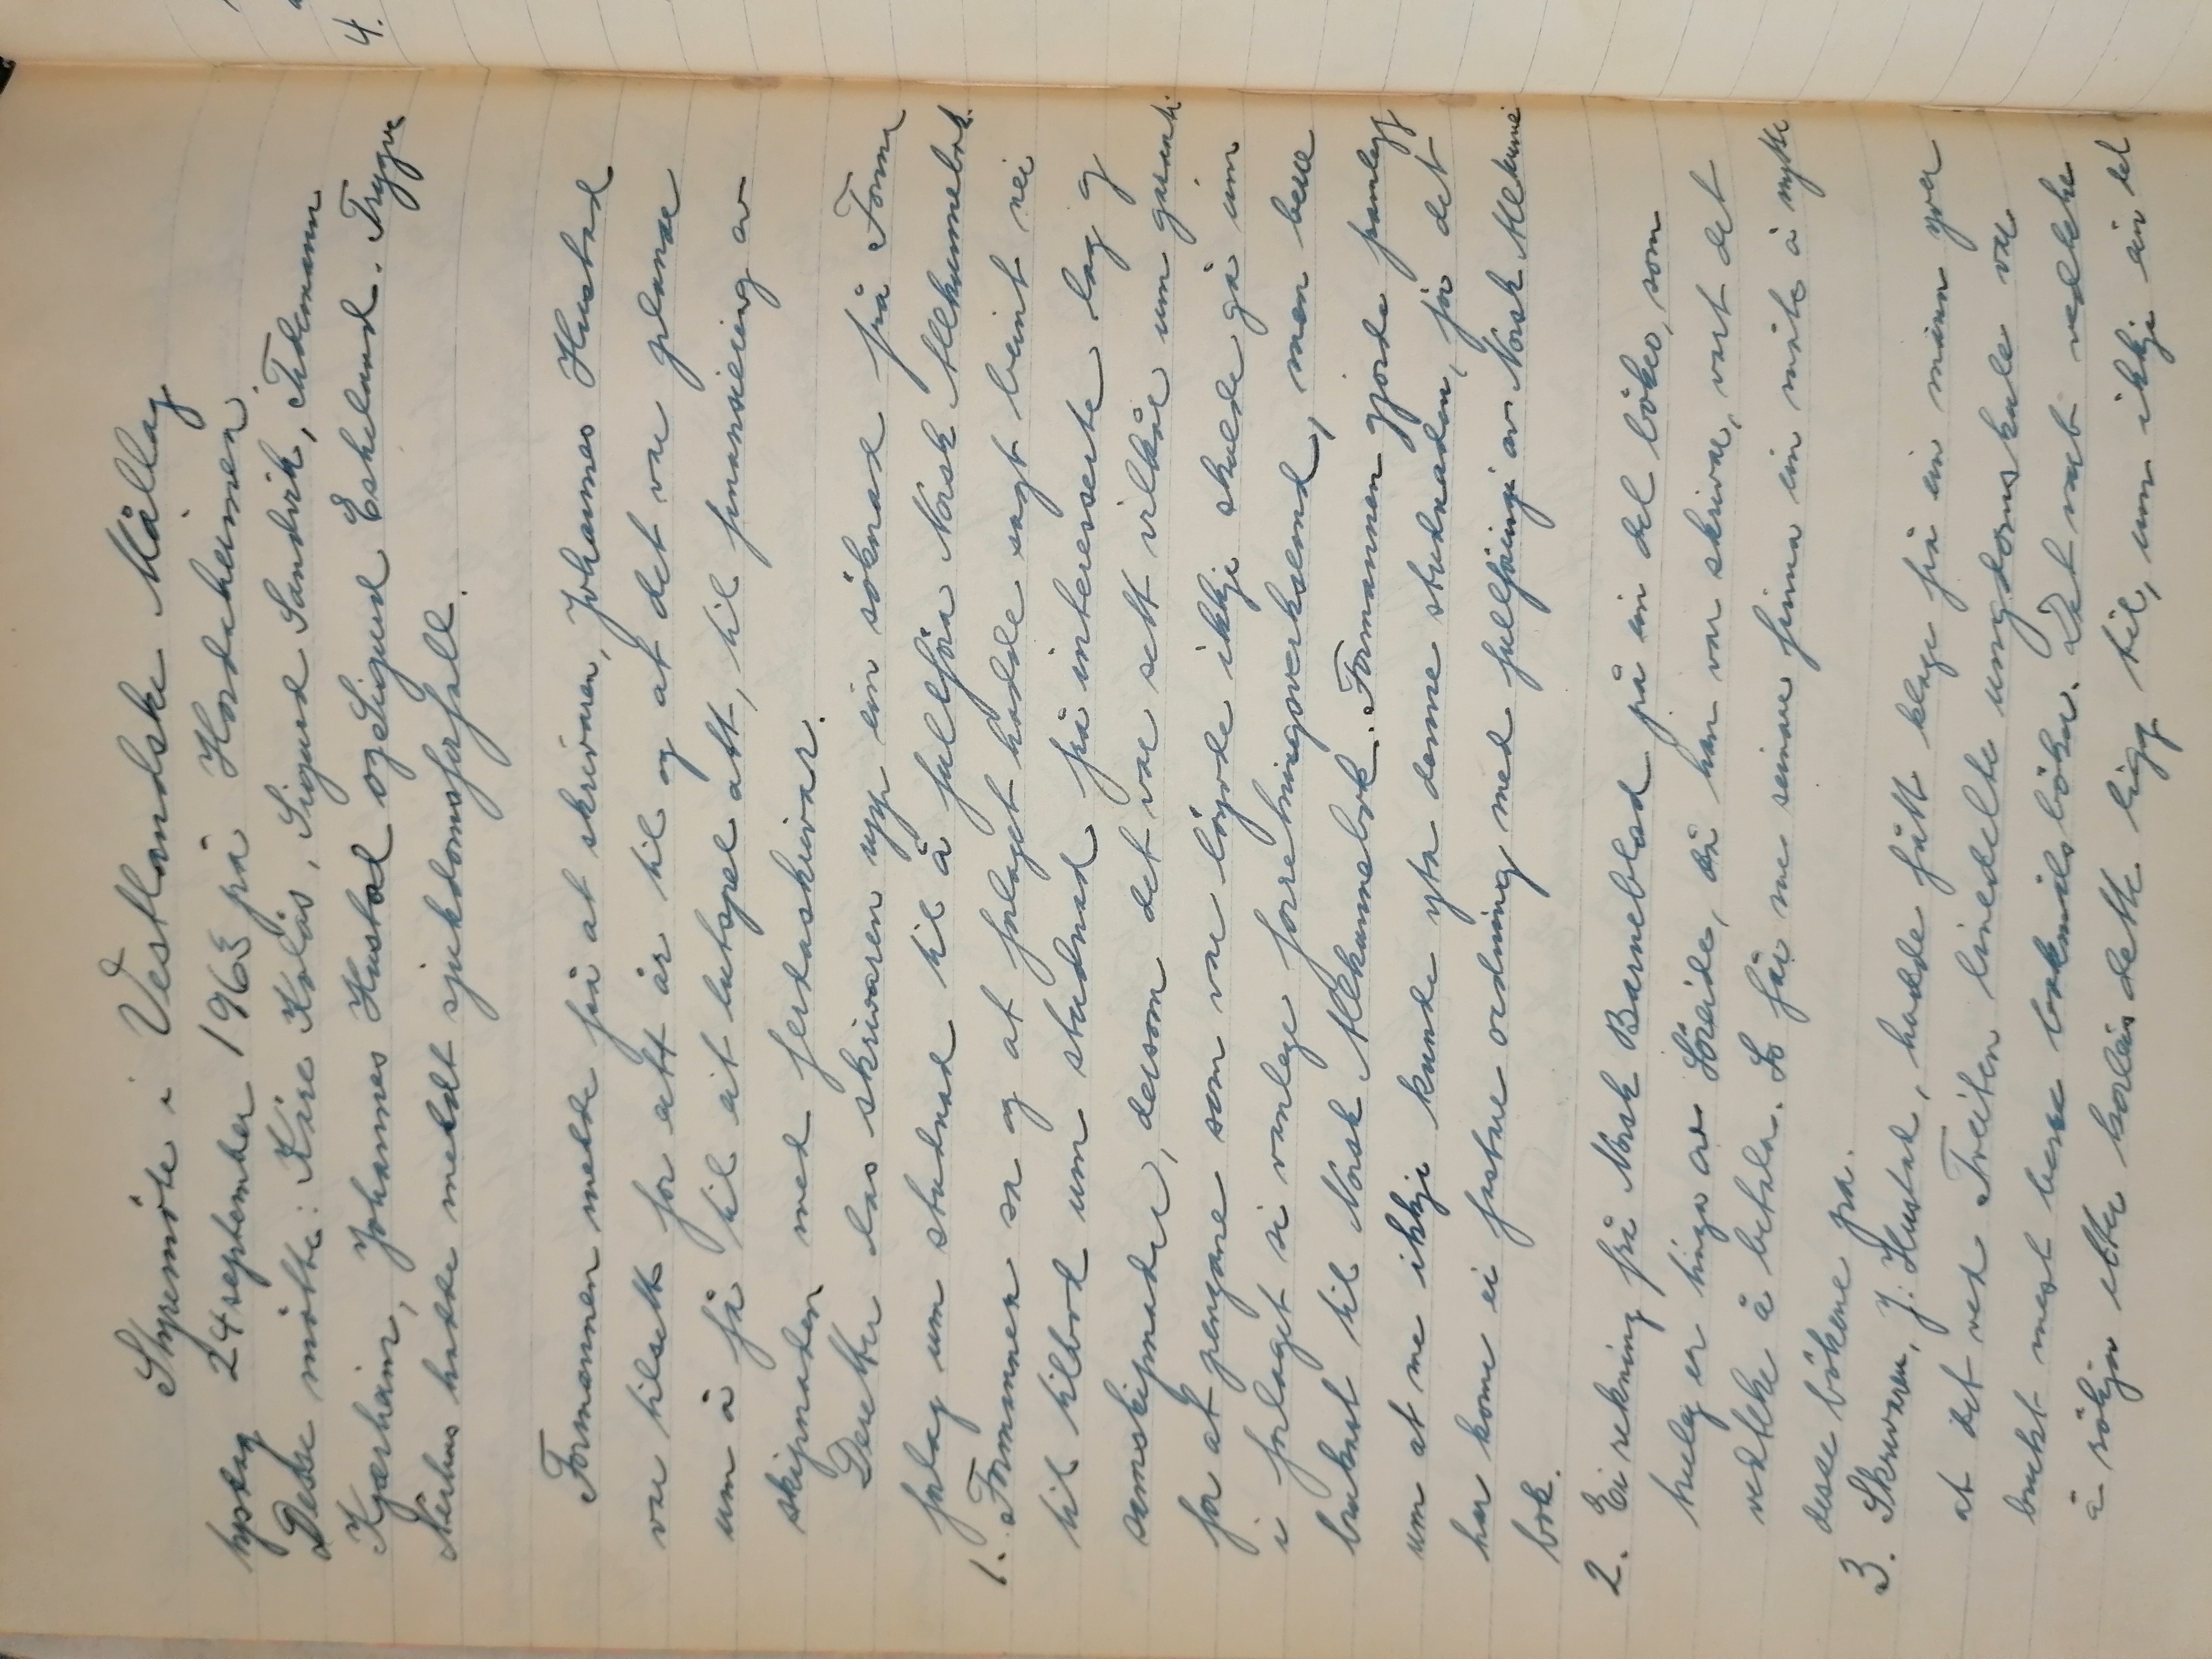 Styremöte i Vestlandske Mållag
tysdag 24 september 1963 på Hordaheimen.
Desse møtte: Kåre Kolås, Sigurd Sandvik, Tidemann
Kjærheim, Johannes Hustad og Sigurd Eskeland. Trygve
Nerhus hadde meldt sjukdomsforfall.
Formannen melde frå at skrivaren, Johannes Hustad
var tilsett for eitt år til og at det var planar
um å få til eit lutspel att, til finansiering av
skipnaden med ferdaskrivar.
Deretter las skrivaren upp ein söknad frå Fonna
forlag um studnad til å fullföra Norsk Allkunnebok.
1. Formannen sa og at forlaget hadde sagt beint nei
til tilbod um studnad frå interesserte lag og
samskipnader, dersom det var sett vilkår um garanti
for at pengane som var löyvde ikkje skulde gå inn
i forlaget si vanlege forretningsverksemd, men bere
brukast til Norsk Allkunnebok. Formannen gjorde framlegg
um at me ikkje kunde yta denne studnaden, för det
har kome ei fastare ordning med fullföringi av Norsk Allkunne
bok.
2. Ei rekning frå Norsk Barneblad på ein del böker, som
truleg er tinga av Söreide, då han var skrivar, vart det
vedteke å betala. So får me seinare finna ein måte å nytta
desse bökene på.
3. Skrivaren, J. Hustad, hadde fått klage frå ein mann yver
at det ved Treiten linedelte ungdomskule var
brukt mest berre bokmålsböker. Det vart vedteke
å rökja etter korleis dette ligg til, um ikkje ein del
4.